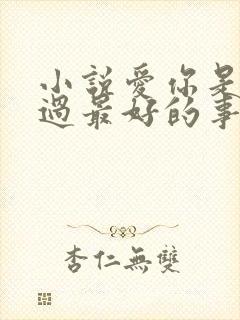 小說愛你是
過最好的事
杏仁無雙